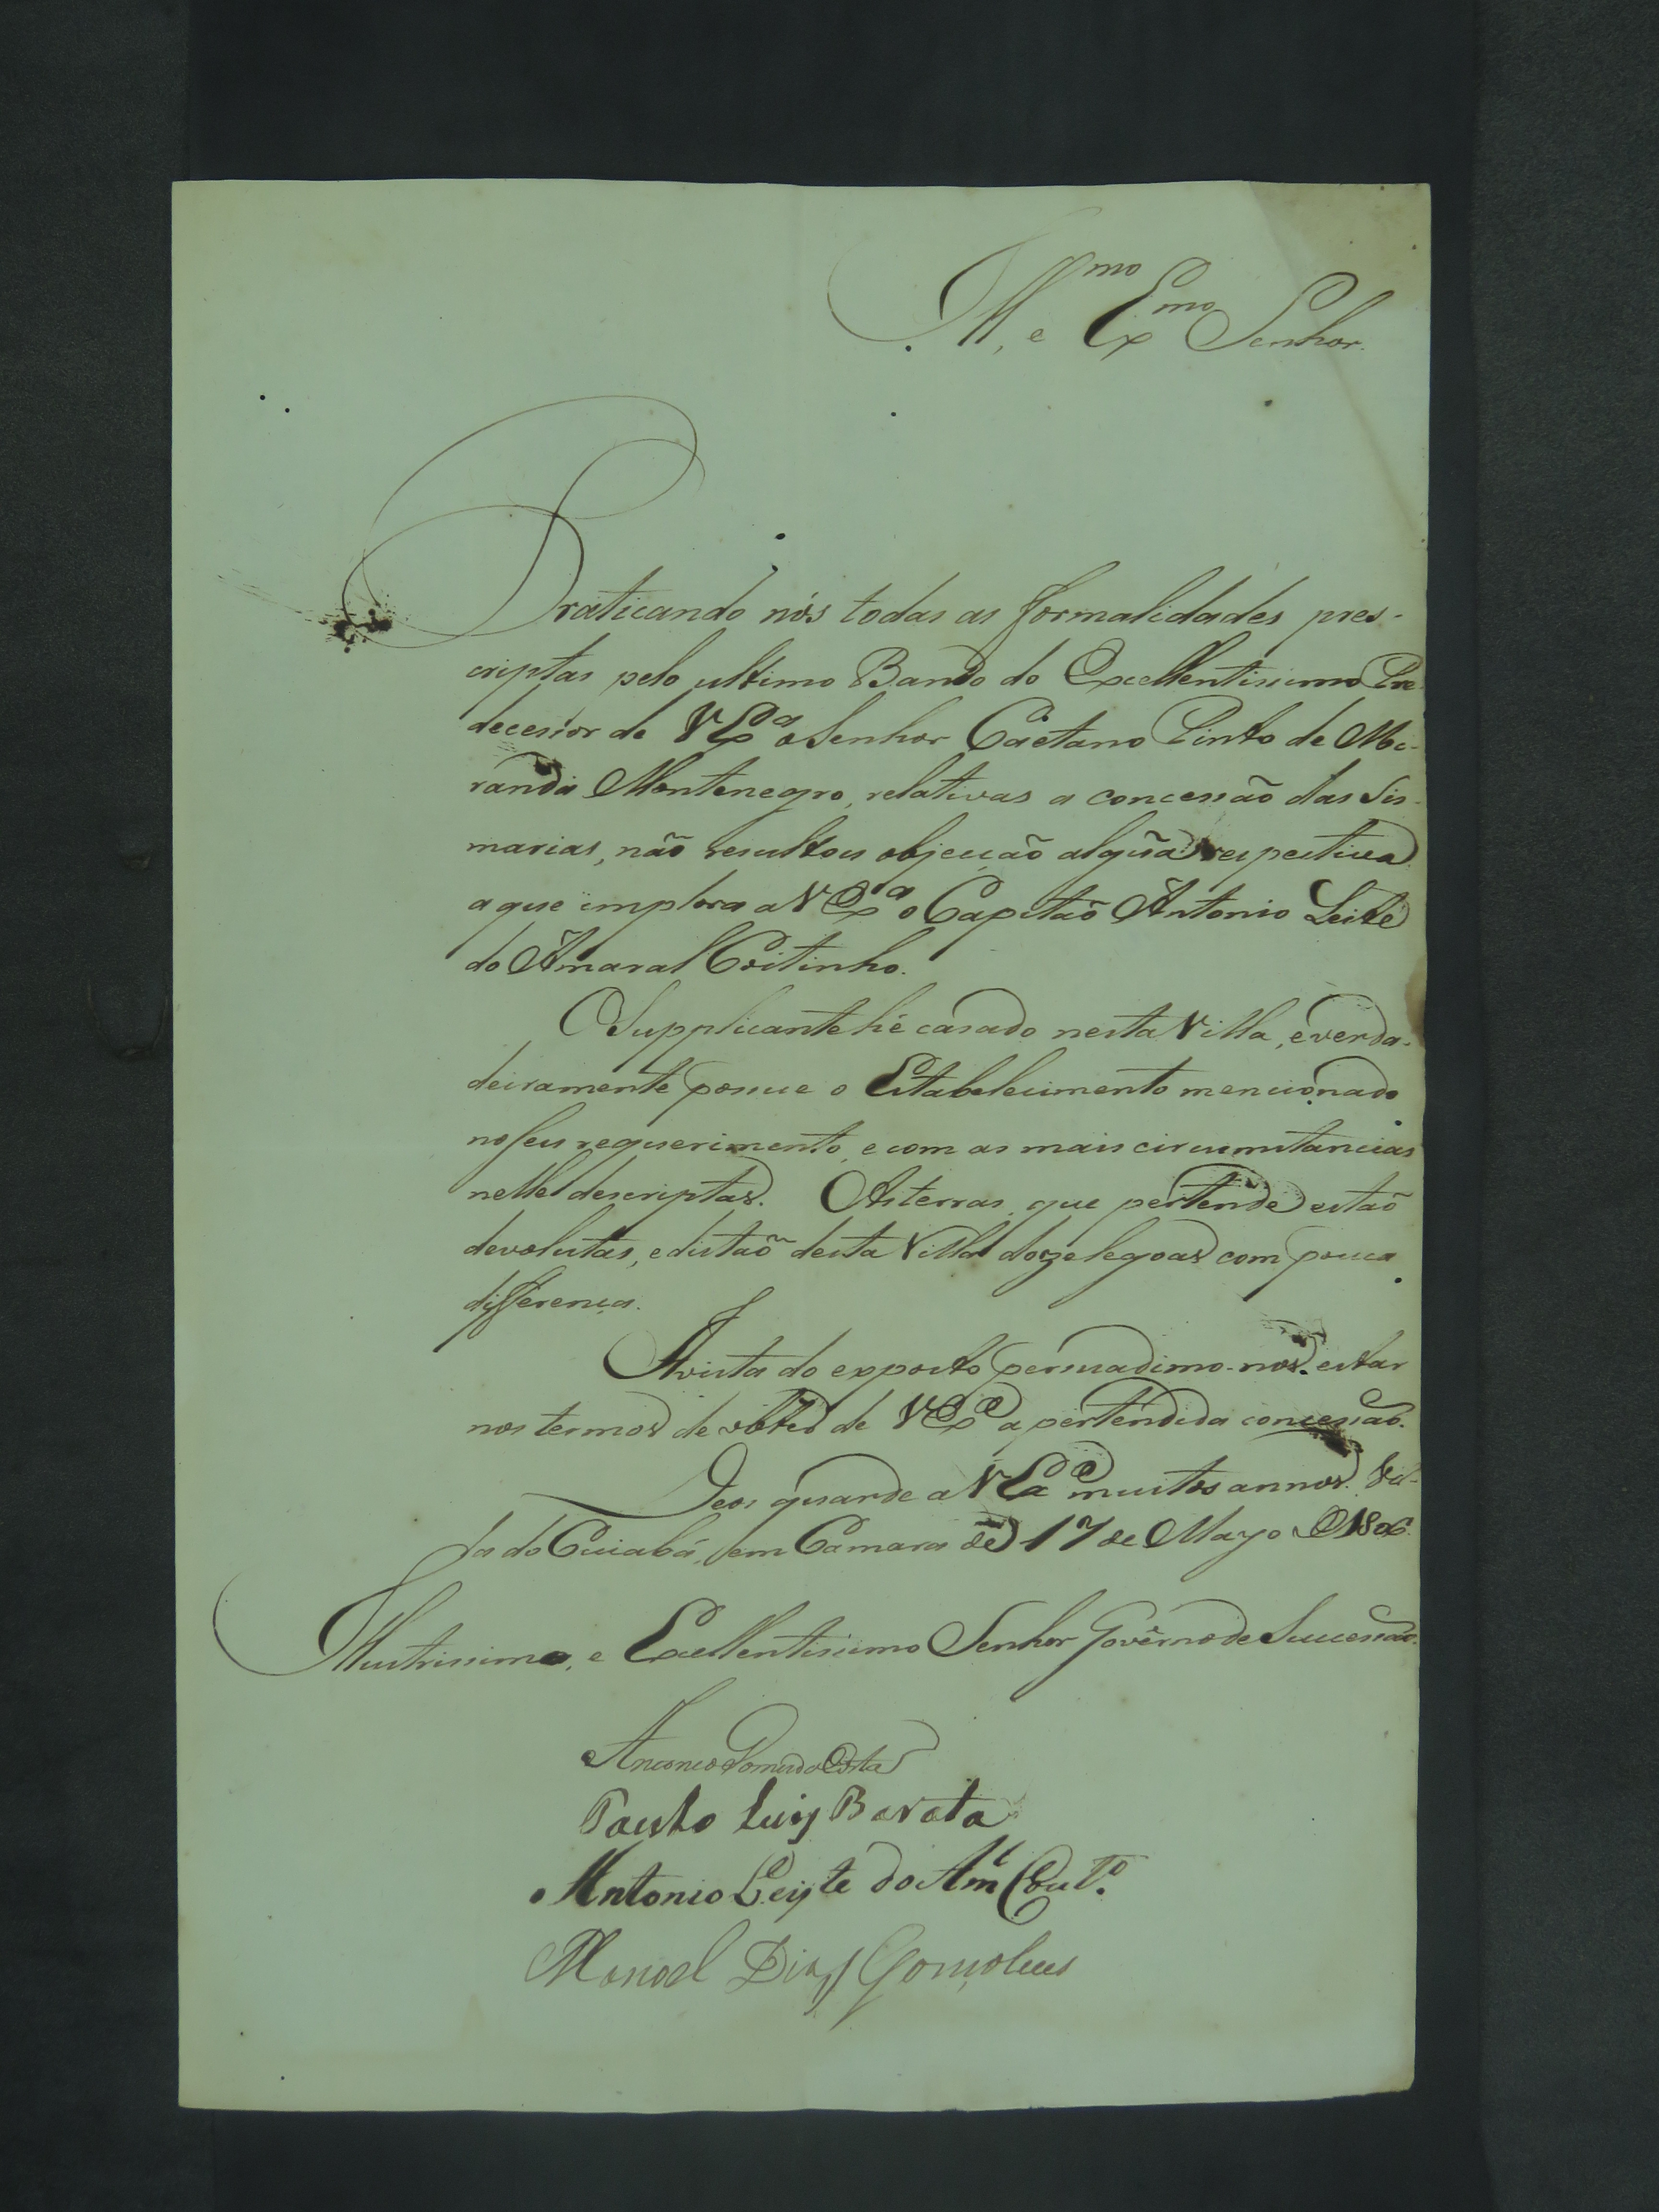 Ill.mo, e Ex.mo Senhor.
Praticando nós todas as formalidades pres-
criptas pelo ultimo Bando do Excellentissimo Pre-
decessor de V Ex.a o Senhor Caetano Pinto de Mi-
randa Montenegro, relativas a concessão das Sis-
marias, não resultou objecção algũa respectiva
a que implora a V Ex.a o Capitaõ Antonio Leite
do Amaral Coitinho.
O Supplicante hé casado nesta Villa, e verda-
deiramente possue o Estabelecimento mencionado
no seu requerimento, e com as mais circumstancias
nelle descriptas. As terras, que pertende estaõ
devolutas, e distaõ desta Villa doze legoas com pouca
differença.
Á vista do exposto persuadimo-nos estar
nos termos de obter de V Ex.a a pertendida concessaõ.
Deos guarde a V Ex.a muitos annos. Vil-
la do Cuiabá, em Camara de 17 de Mayo de 1806.
Illustrissimo, e Excellentissimo Senhor Govêrno de Sucessão.
Antonio da Costa
Paulo Luiz Barata
Antonio Leyte do Am.l Cout.o
Manoel Dias Gonçalves